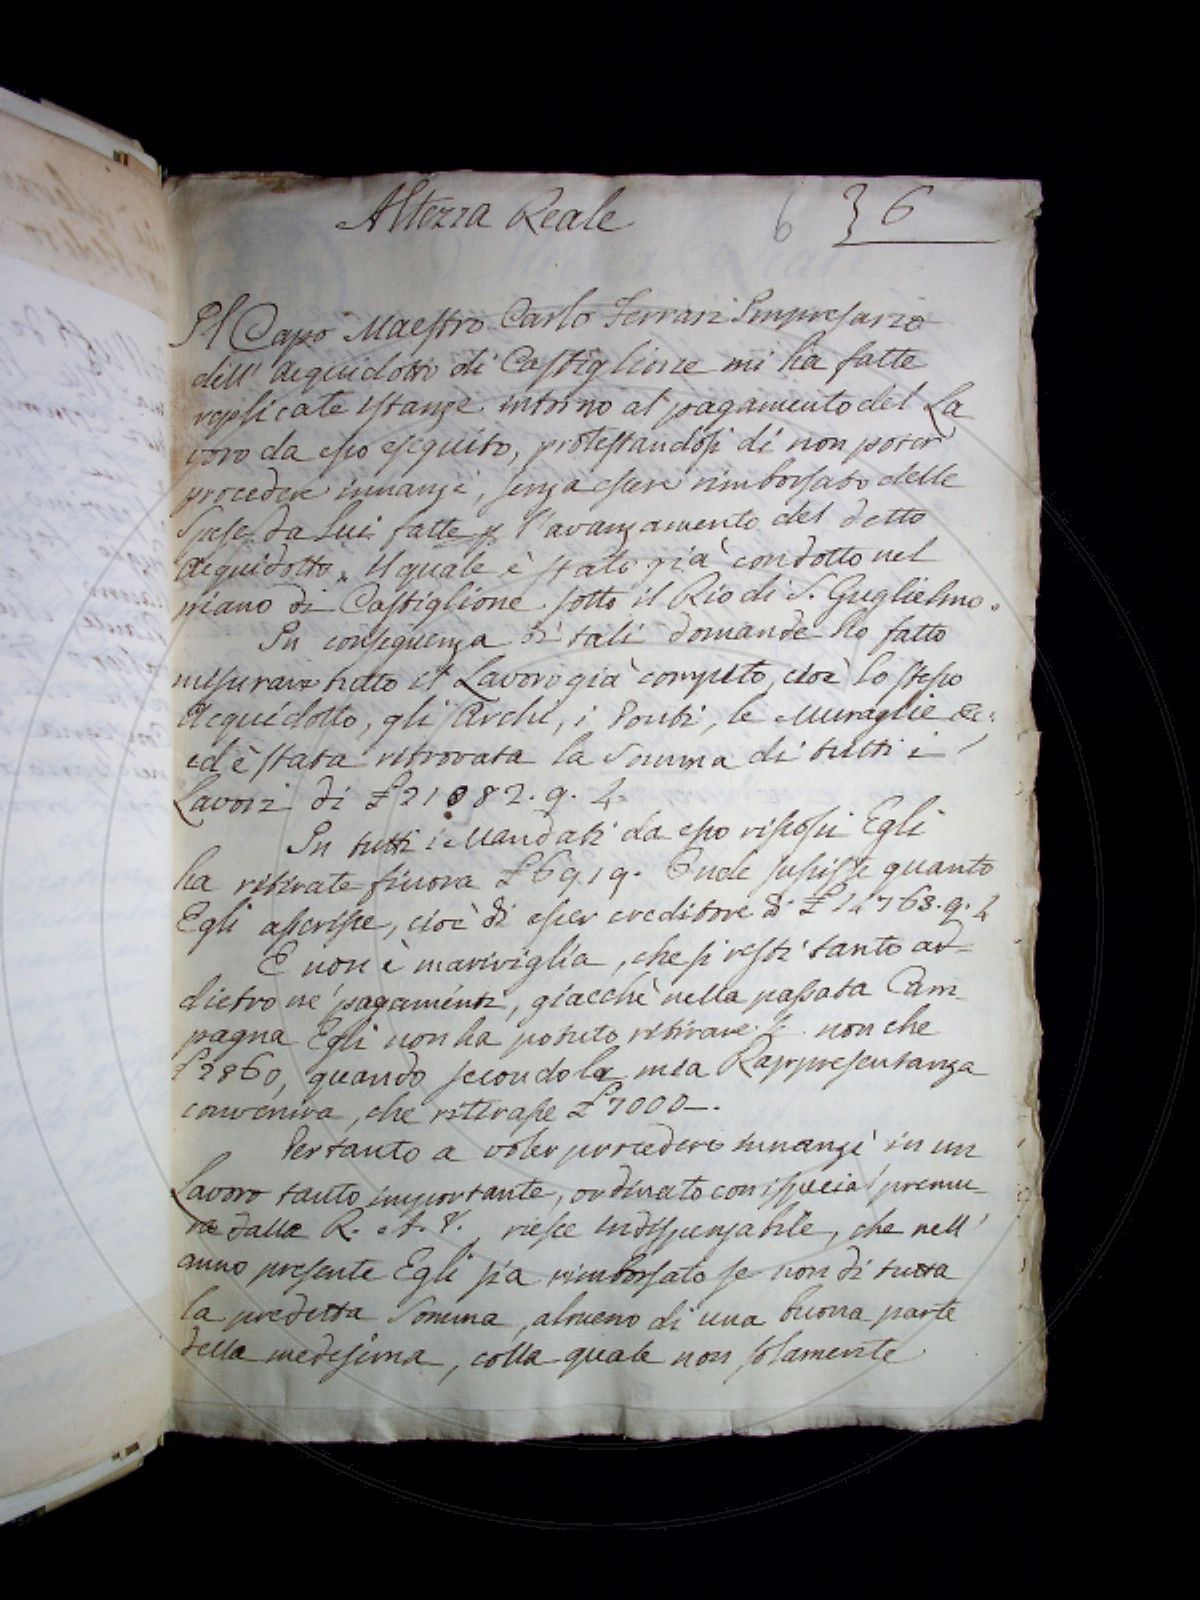 Altezza Reale
6 } 6
Il Capo Maestro Carlo Ferrari Impresario
dell' Acquidotto di Castiglione mi ha fatte
replicate istanze intorno al pagamento del La
voro da esso eseguito, protestandosi di non poter
procedere innanzi, senza essere rimborsato delle
Spese da Lui fatte p l'avanzamento del detto
Acquidotto, il quale è stato già condotto nel
piano di Castiglione sotto il Rio di S. Guglielmo.
In conseguenza di tali domande ho fatto
misurare tutto il Lavoro già compito, cioè lo stesso
Acquidotto, gli Archi, i Ponti, le Muraglie &c;
ed è stata ritrovata la Somma di tutti i
Lavori di £ 21 82. 9. 4.
In tutti i Mandati da esso Egli
ha ritirate finora £ 6919. Onde sussiste quanto
Egli asserisse, cioè di esser creditore di £ 14763. 9. 4
E non è mariviglia, che si resti tanto ad=
dietro ne' pagamenti, giacchè nella passata Cam=
pagna Egli non ha potuto ritirare non che
£ 2860, quando secondo la mia Rappresentanza
conveniva, che ritirasse £ 7000 —.
Pertanto a voler procedere innanzi in un
Lavoro tanto importante, ordinato con ispecial premu=
ra dalla R. A. V. riesce indispensabile, che nell'
anno presente Egli sia rimborsato se non di tutta
la predetta Somma, almeno di una buona parte
della medesima, colla quale non solamente